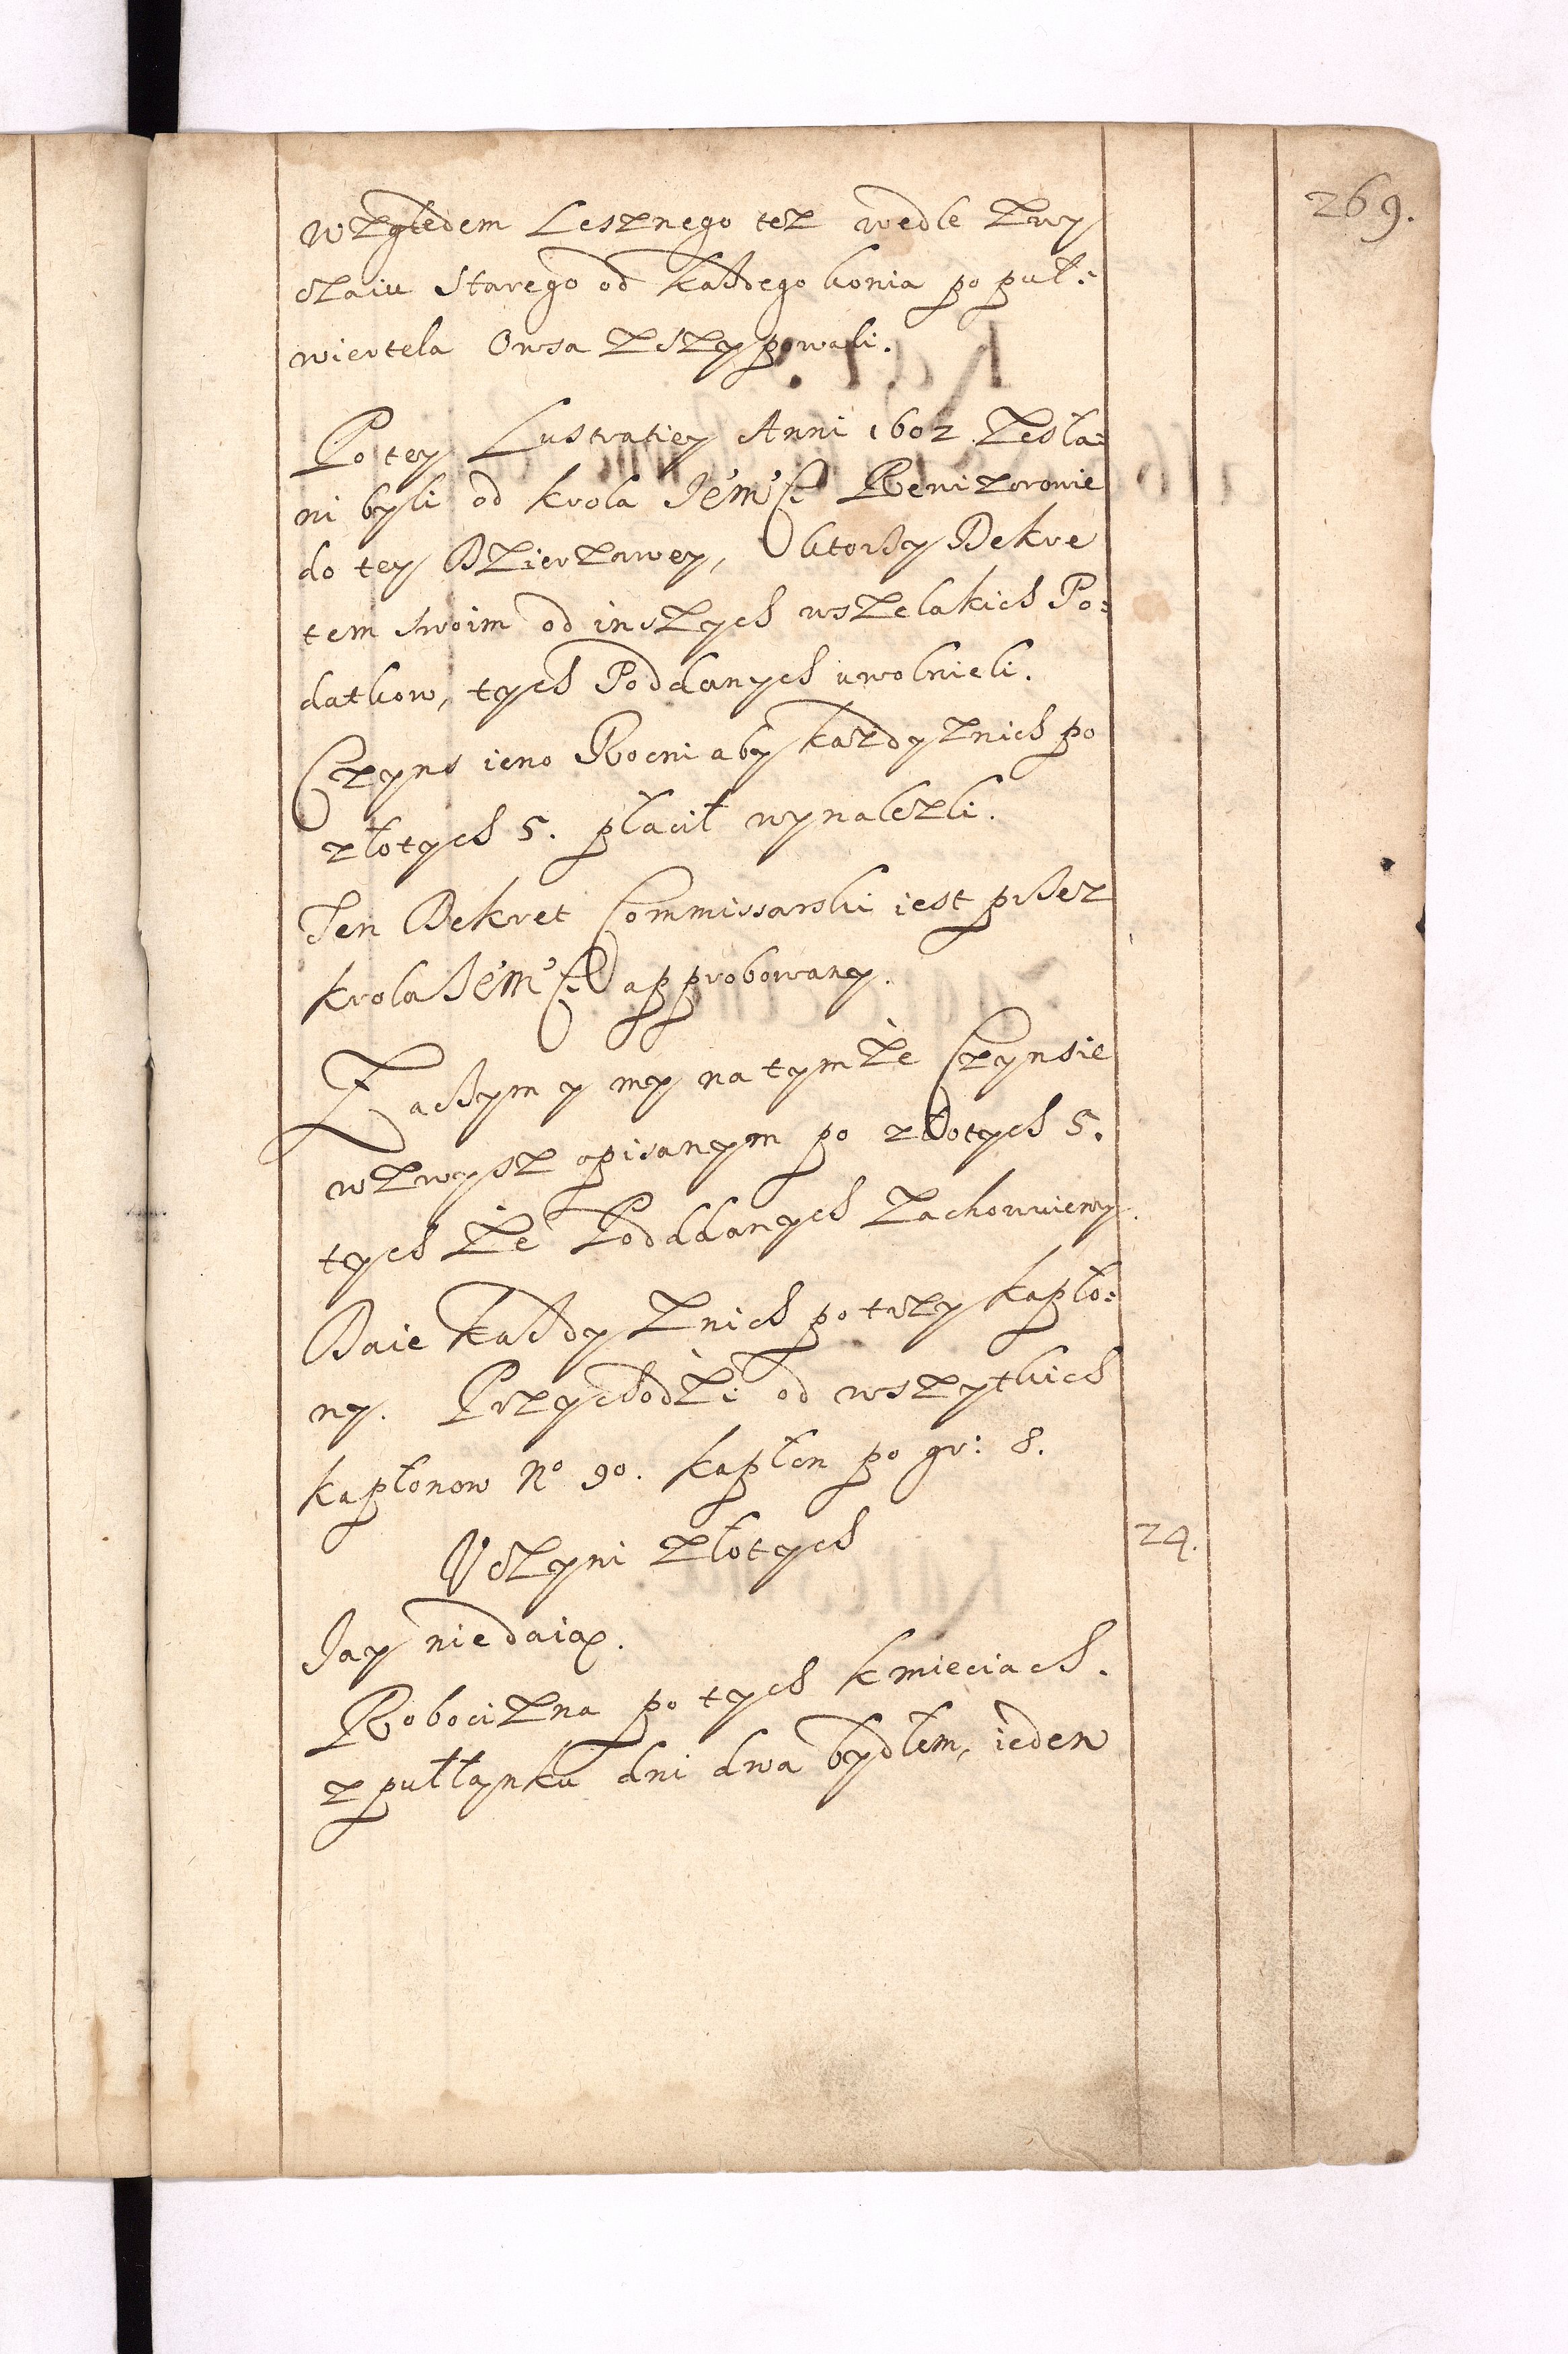 269.
Wzgledem Lesznego tez wedle zwy
czaiu Starego od kazdego konia po puł:
wiertela Owsa zszypowali.
Po tey Lustratiey Anni 1602 zesła:
ni byli od krola Je᾽m᾽ści Rewizorowie
do tey Dzierzawey, ktorzy Dekre
tem swoim od inszych wszelakich Po:
datkow, tych Poddanych uwolnieli.
Czyns ieno Rocni aby kazdy znich po
złotych 5. płacił wynalezli.
Ten Dekret Commissarski iest przez
krola Je᾽m᾽ści approbowany.
Zaczym y my na tymże Czynsie
wzwysz opisanym po złotych 5.
tych że Poddanych zachowuiemy.
Daie kazdy znich po trzy kapło:
ny. Przychodżi od wszytkich
kapłonow No 90. kapłon po gr: 8.
Vczyni złotych 24.
Jay niedaią.
Robocizna po tych kmieciach.
z pułłanku dni dwa bydłem, ieden